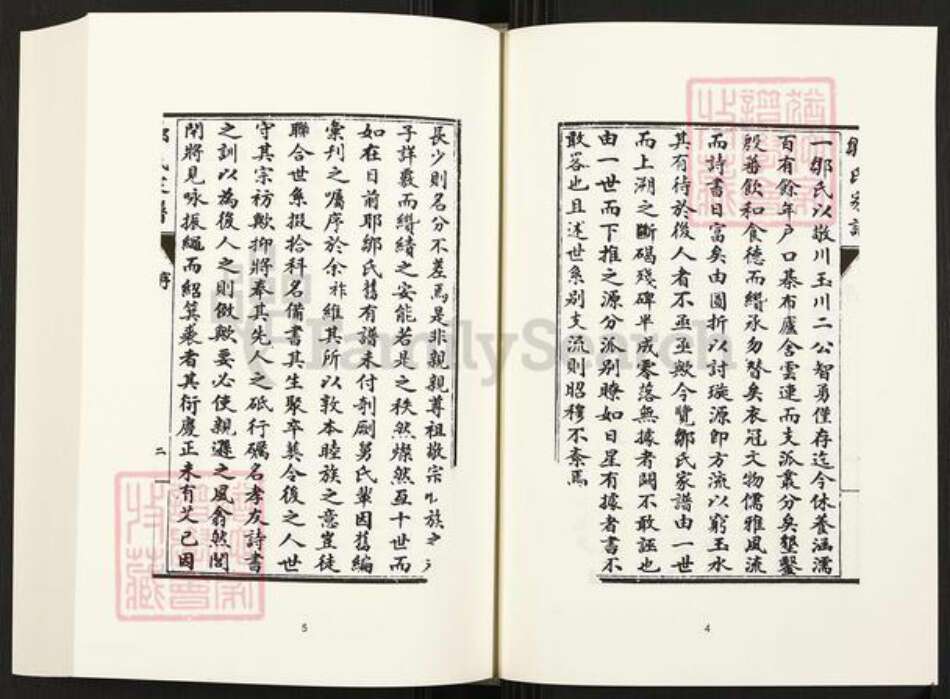 一鄒氏以敬川玉川二公智勇僅存迄今休養涵濡
百有餘年户口棊布廬舍雲連而支派叢分矣墾鑿
殷蕃飲和食德而纘承勿替矣衣冠文物儒雅風流
而詩書日富矣由圓折以討璇源即方流以窮玉水
其有待於後人者不亟亟歟今覽鄒氏家譜由一世
而上溯之斷碣殘碑半成零落無據者闕不敢誣也
由一世而下推之源分派别瞭如日星有據者書不
敢畧也且述世系别支流則昭穆不紊焉
4
長少則名分不差焉是非親親尊祖敬宗收族之
子詳覈而纘續之安能若是之秩然燦然亙十世而
如在目前耶鄒氏舊有譜未付剞劂舅氏輩因舊編
彙刊之囑序於余祚維其所以敦本睦族之意豈徒
聯合世系掇拾科名備書其生聚卒葬令後之人世
守其宗祊歟抑將奉其先人之砥行礪名孝友詩書
之訓以為後人之則傚歟要必使親遜之風翕然閭
閈將見咏振繩而紹箕裘者其衍慶正未有艾已因
二
5
FamilySearch